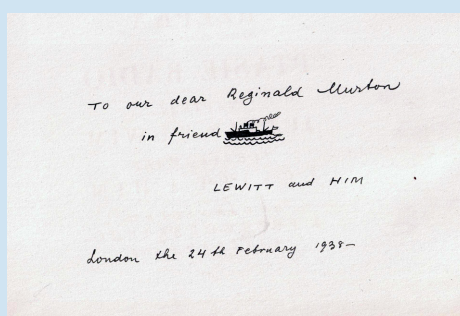 To our dear Reginald Murton
in friend
LEWITT and HIM
London the 24th February 1938–